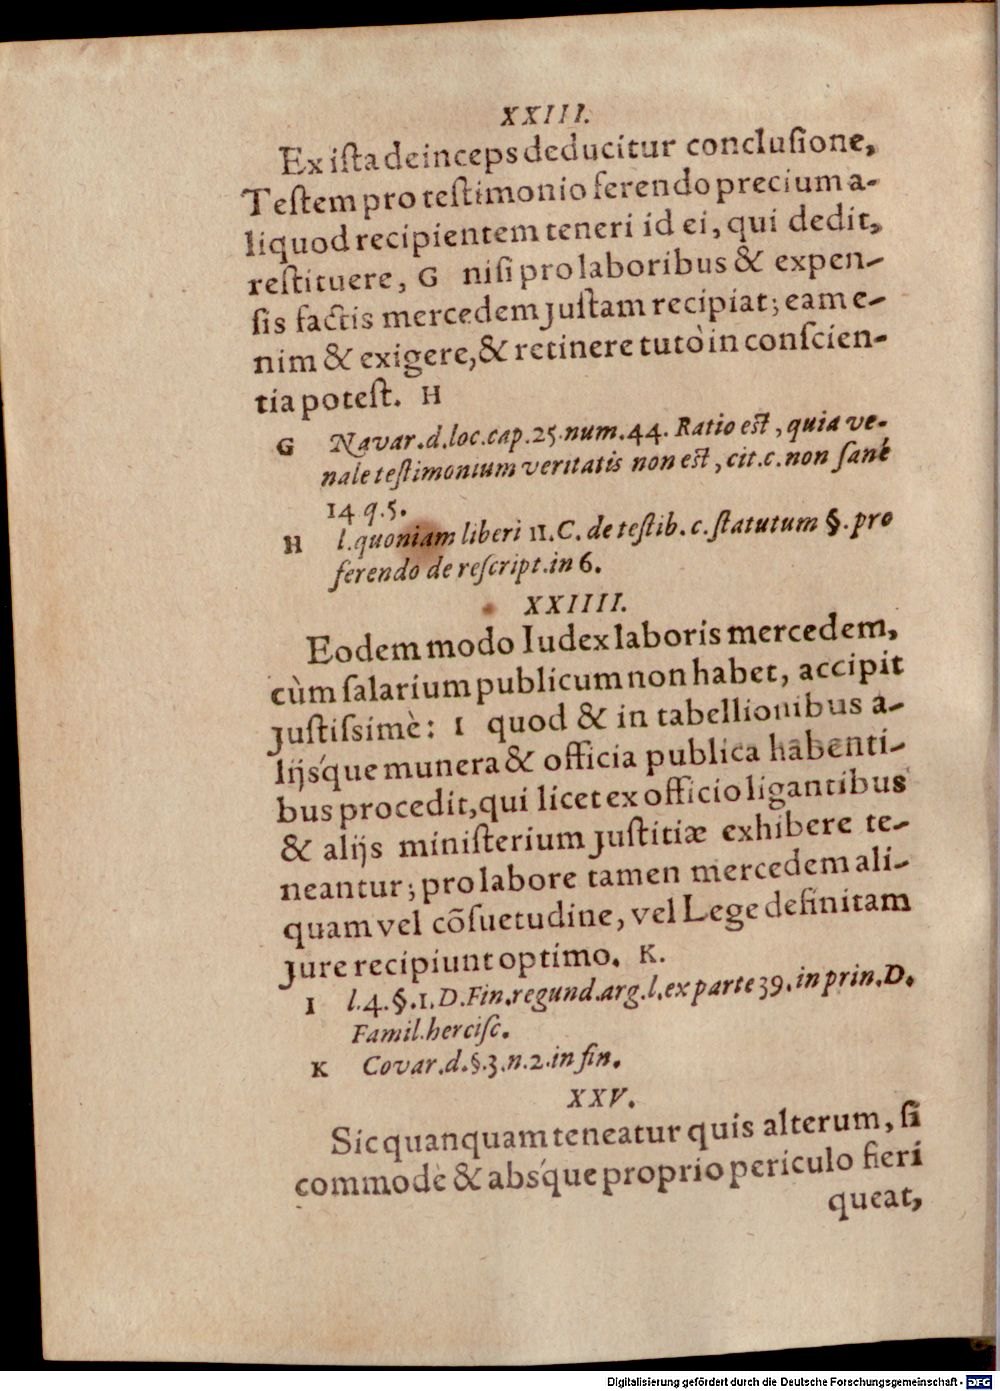 XXIII.
Ex iſta deinceps deducitur concluſione,
Teſtem pro teſtimonio ferendo precium a-
liquod recipientem teneri id ei, qui dedit,
reſtituere, G niſi pro laboribus & expen-
ſis factis mercedem juſtam recipiat; eam e-
nim & exigere, & retinere tutò in conſcien-
tia poteſt. H
G Navar. d. loc. cap. 25. num. 44. Ratio eſt, quia ve-
nale teſtimonium veritatis non eſt, cit. c. non ſanè
14 q. 5.
H l. quoniam liberi 11. C. de teſtib. c. ſtatutum §. pro
ferendo de reſcript. in 6.
XXIIII.
Eodem modo Iudex laboris mercedem,
cùm ſalarium publicum non habet, accipit
juſtiſsimè: I quod & in tabellionibus a-
lijsq́ue munera & officia publica habenti-
bus procedit, qui licet ex officio ligantibus
& alijs miniſterium juſtitiæ exhibere te-
neantur; pro labore tamen mercedem ali-
quam vel cõſuetudine, vel Lege definitam
jure recipiunt optimo. K.
I l. 4. §. 1. D. Fin. regund. arg. l. ex parte 39. in prin. D.
Famil. herciſc.
K Covar. d. §. 3. n. 2. in fin.
XXV.
Sic quanquam teneatur quis alterum, ſi
commodè & absq́ue proprio periculo fieri
queat,
Digitalisierung gefördert durch die Deutsche Forschungsgemeinschaft - DFG